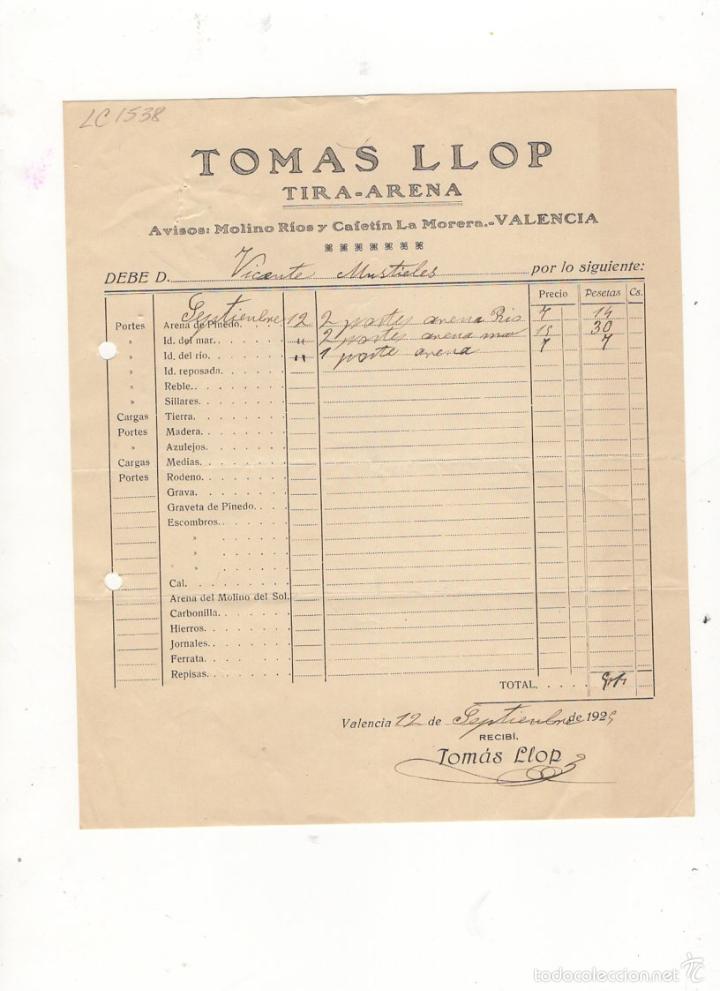 LC 1538
TOMÁS LLOP
TIRA-ARENA
Avisos: Molino Ríos y Cafetín La Morera.-VALENCIA
DEBE D. Vicente Mustieles por lo siguiente:
Precio Pesetas Cs.
Septiembre 12 2 portes arena Rio 7 14
Portes Arena de Pinedo.
» Id. del mar. " 2 portes arena mar 15 30
» Id. del río. " 1 porte arena 7 7
» Id. reposada.
» Reble.
» Sillares.
Cargas Tierra.
Portes Madera.
» Azulejos.
Cargas Medias.
Portes Rodeno.
Grava.
Graveta de Pinedo.
Escombros.
»
»
»
Cal.
Arena del Molino del Sol.
Carbonilla.
Hierros.
Jornales.
Ferrata.
Repisas.
TOTAL.
Valencia 12 de Septiembre de 192
RECIBÍ.
Tomás Llop
todocoleccion.net